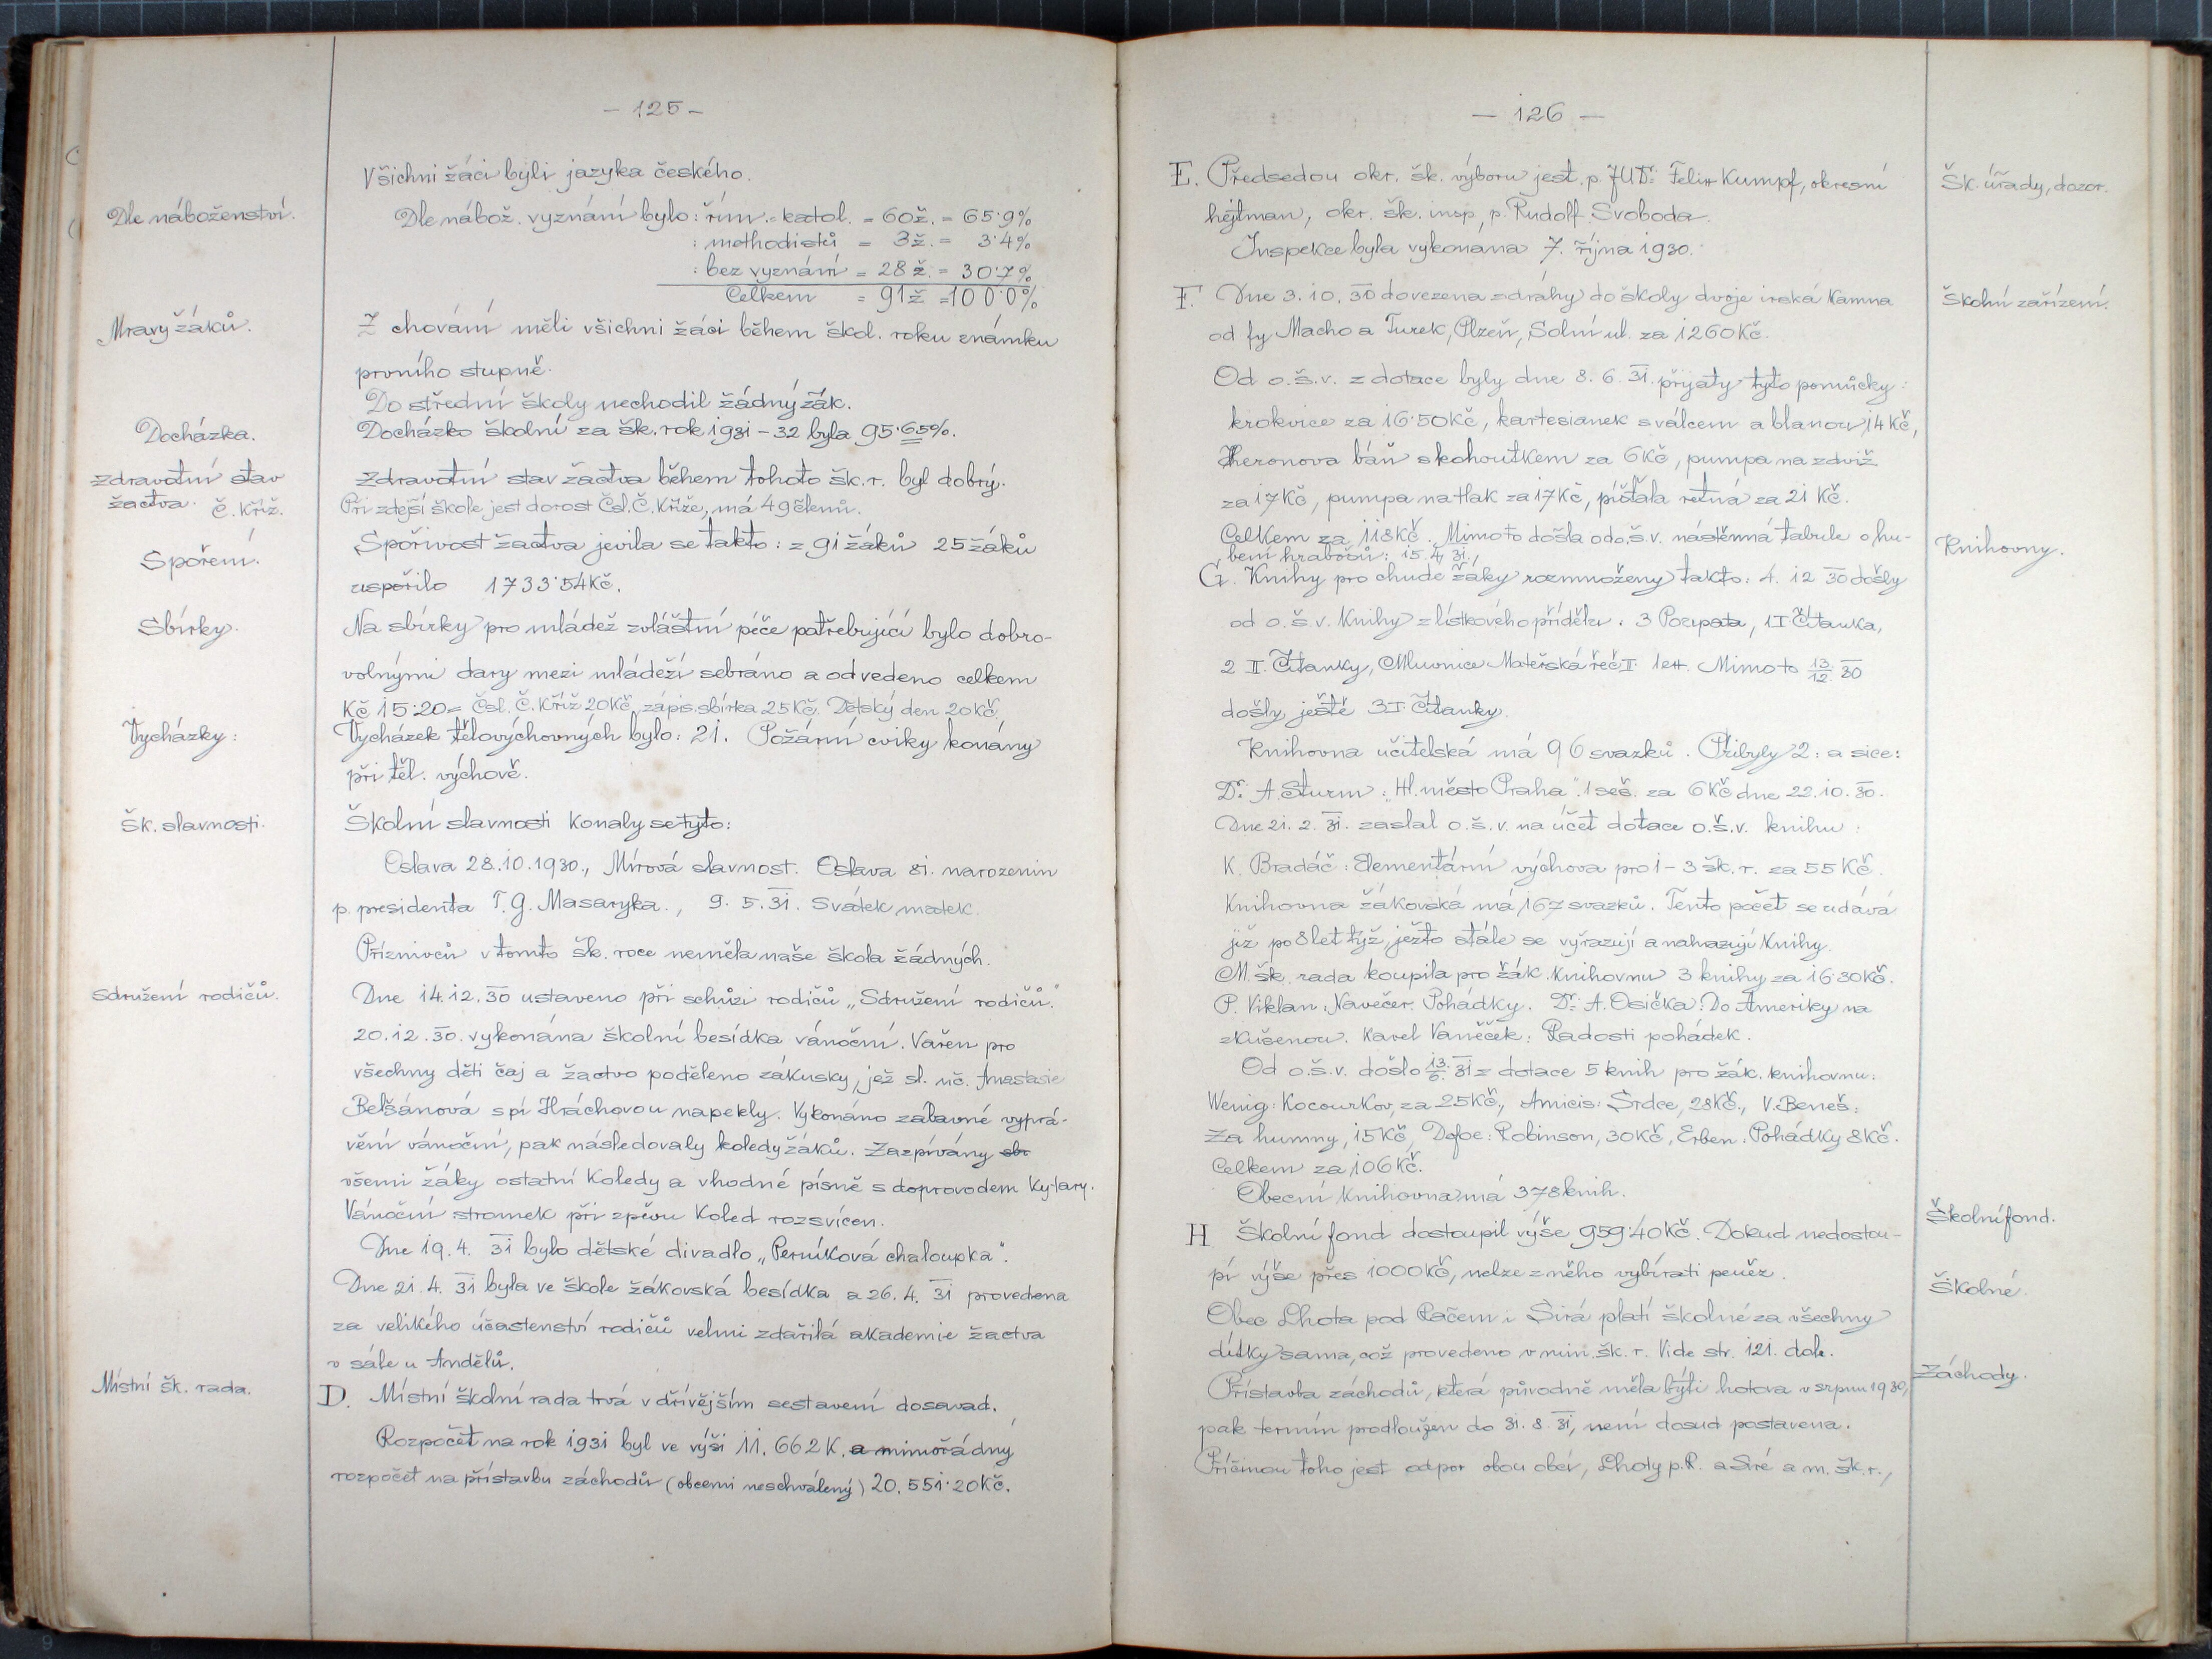 - 125 -
Všichni žáci byli jazyka českého.
Dle náboženství.
Dle nábož. vyznání bylo: řím.-katol. = 60ž. = 65·9%
: methodistů = 3ž. = 3·4%
: bez vyznání = 28 ž. = 30·7%
Celkem = 91ž = 100·0%
Mravy žáků.
Z chování měli všichni žáci během škol. roku známku
prvního stupně.
Do střední školy nechodil žádný žák.
Docházka.
Docházko školní za šk. rok 1931-32 byla 95·65%.
Zdravotní stav
žactva. Č. Kříž.
Zdravotní stav žactva během tohoto šk. r. byl dobrý.
Při zdejší škole jest dorost Čsl. Č. Kříže, má 49 členů.
Spoření.
Spořivost žactva jevila se takto: z 91 žáků 25 žáků
uspořilo 1733·54Kč.
Sbírky.
Na sbírky pro mládež zvláštní péče potřebující bylo dobro-
volnými dary mezi mládeží sebráno a odvedeno celkem
Kč 15·20= Čsl. Č. Kříž 20Kč, zápis. sbírka 25Kč. Dětský den 20Kč.
Vycházky:
Vycházek tělovýchovných bylo: 21. Požární cviky konány
při těl. výchově.
Šk. slavnosti.
Školní slavnosti konaly se tyto:
Oslava 28.10.1930., Mírová slavnost. Oslava 81. narozenin
p. presidenta T. G. Masaryka., 9. 5. 31. Svátek matek.
Příznivců v tomto šk. roce neměla naše škola žádných.
Sdružení rodičů.
Dne 14.12.30 ustaveno při schůzi rodičů „Sdružení rodičů."
20.12.30. vykonána školní besídka vánoční. Vařen pro
všechny děti čaj a žactvo poděleno zákusky, jež sl. uč. Anastasie
Belšánová s pí Hráchovou napekly. Vykonáno zábavné vyprá-
vění vánoční, pak následovaly koledy žáků. Zazpívány sbr
všemi žáky ostatní koledy a vhodné písně s doprovodem Kytary.
Vánoční stromek při zpěvu Koled rozsvícen.
Dne 19. 4. 31 bylo dětské divadlo „Perníková chaloupka".
Dne 21. 4. 31 byla ve škole žákovská besídka a 26. 4. 31 provedena
za velikého účastenství rodičů velmi zdařilá akademie žactva
v sále u Andělů.
Místní šk. rada.
D. Místní školní rada trvá v dřívějším sestavení dosavad.
Rozpočet na rok 1931 byl ve výši 11.662 K. a mimořádný
rozpočet na přístavbu záchodů (obcemi neschválený) 20.551·20Kč.
- 126 -
E. Předsedou okr. šk. výboru jest. p. JUDr. Felix Kumpf, okresní
Šk. úřady, dozor.
hejtman, okr. šk. insp. p. Rudolf Svoboda.
Inspekce byla vykonana 7. října 1930.
F. Dne 3. 10. 30 dovezena z dráhy do školy dvoje irská Kamna
Školní zařízení.
od fy Macho a Turek, Plzeň, Solní ul. za 1260Kč.
Od o.š.v. z dotace byly dne 8. 6. 31. přijaty tyto pomůcky:
krokvice za 16·50Kč, kartesianek s válcem a blanou 14Kč,
Heronova báň s kohoutkem za 6Kč, pumpa na zdviž
za 17Kč, pumpa na tlak za 17Kč, píšťala retná za 21 Kč.
Celkem za 118Kč. Mimo to došla od o.š.v. nástěnná tabule o hu-
bení hrabošů: 15. 4. 31.,
Knihovny.
G. Knihy pro chudé žáky rozmnoženy takto: 4. 12 30 došly
od o.š.v. Knihy z lístkového přídělu: 3 Poupata, 1 I Čítanka,
2 II. Čítanky, Mluvnice Mateřská řeč II. 1ex. Mimo to 13/12. 30
došly ještě 3 I. Čítanky.
Knihovna učitelská má 96 svazků. Přibyly 2: a sice:
Dr. A. Sturm: „Hl. město Praha". 1 seš. za 6Kč dne 22. 10. 30.
Dne 21. 2. 31. zaslal o.š.v. na účet dotace o.š.v. knihu:
K. Bradáč: Elementární výchova pro 1-3 šk. r. za 55 Kč.
Knihovna žákovská má 167 svazků. Tento počet se udává
již po 8 let týž, ježto stále se vyřazují a nahrazují Knihy.
M. šk. rada koupila pro žák. knihovnu 3 knihy za 16·30Kč.
P. Viklan: Navečer. Pohádky. Dr. A. Osička: Do Ameriky na
zkušenou. Karel Vaněček: Radosti pohádek.
Od o.š.v. došlo 13/6. 31 z dotace 5 knih pro žák. knihovnu:
Wenig: Kocourkov, za 25Kč., Amicis: Srdce, 28Kč., V. Beneš:
Za humny, 15Kč, Defoe: Robinson, 30Kč, Erben: Pohádky 8Kč.
Celkem za 106Kč.
Obecní Knihovna má 378 knih.
Školní fond.
H Školní fond dostoupil výše 959·40Kč. Dokud nedostou-
pí výše přes 1000Kč, nelze z něho vybírati peněz.
Školné.
Obec Lhota pod Račem i Sirá platí školné za všechny
dítky sama, což provedeno v min. šk. r. Vide str. 121. dole.
Záchody.
Přístavba záchodů, která původně měla býti hotova v srpnu 1930,
pak termín prodloužen do 31. 8. 31, není dosud postavena.
Příčinou toho jest odpor obou obcí, Lhoty p. R. a Siré a m. šk. r.,